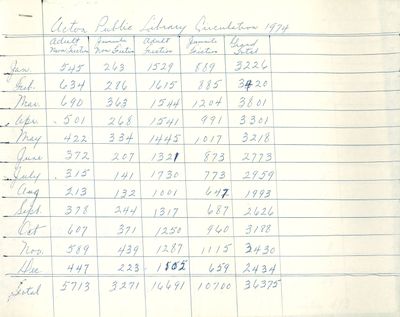 Acton Public Library Circulation 1974
Adult Juvenile Adult Juvenile Grand
Non Fiction Non Fiction Fiction Fiction Total
Jan. 545 263 1529 889 3226
Feb. 634 286 1615 885 3420
Mar. 690 363 1544 1204 3801
Apr. 501 268 1541 991 3301
May 422 334 1445 1017 3218
June 372 207 1321 873 2773
July 315 141 1730 773 2959
Aug 213 132 1001 647 1993
Sept. 378 244 1317 687 2626
Oct 607 371 1250 960 3188
Nov. 589 439 1287 1115 3430
Dec. 447 223 1105 659 2434
Total 5713 3271 16691 10700 36375